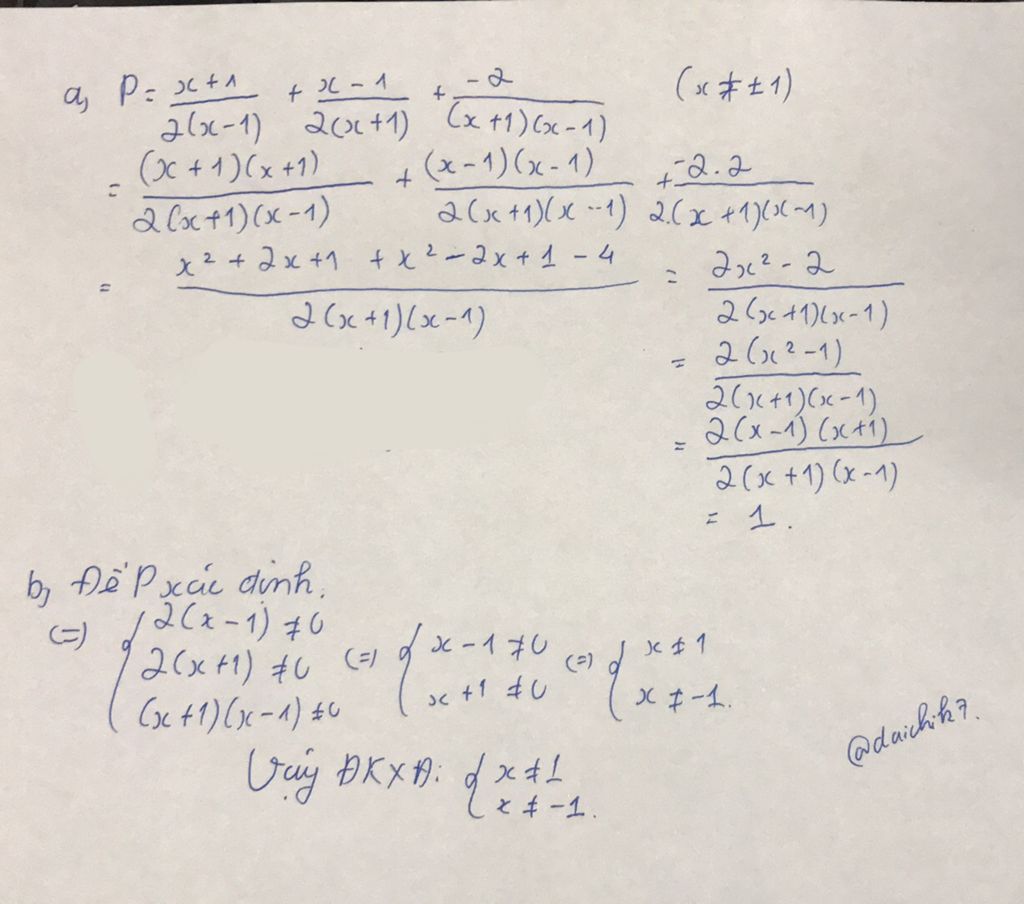 a, P = \frac{x+1}{2(x-1)} + \frac{x-1}{2(x+1)} + \frac{-2}{(x+1)(x-1)} (x ≠ ±1)
= \frac{(x+1)(x+1)}{2(x+1)(x-1)} + \frac{(x-1)(x-1)}{2(x+1)(x-1)} + \frac{-2.2}{2.(x+1)(x-1)}
= \frac{x^2+2x+1+x^2-2x+1-4}{2(x+1)(x-1)} = \frac{2x^2-2}{2(x+1)(x-1)}
= \frac{2(x^2-1)}{2(x+1)(x-1)}
= \frac{2(x-1)(x+1)}{2(x+1)(x-1)}
= 1.
b, Để P xác định.
(=) { 2(x-1) ≠ 0
2(x+1) ≠ 0 (=) { x-1 ≠ 0 (=) { x ≠ 1
(x+1)(x-1) ≠ 0 x+1 ≠ 0 x ≠ -1.
Vậy ĐKXĐ: { x ≠ 1
x ≠ -1.
@daichik7.